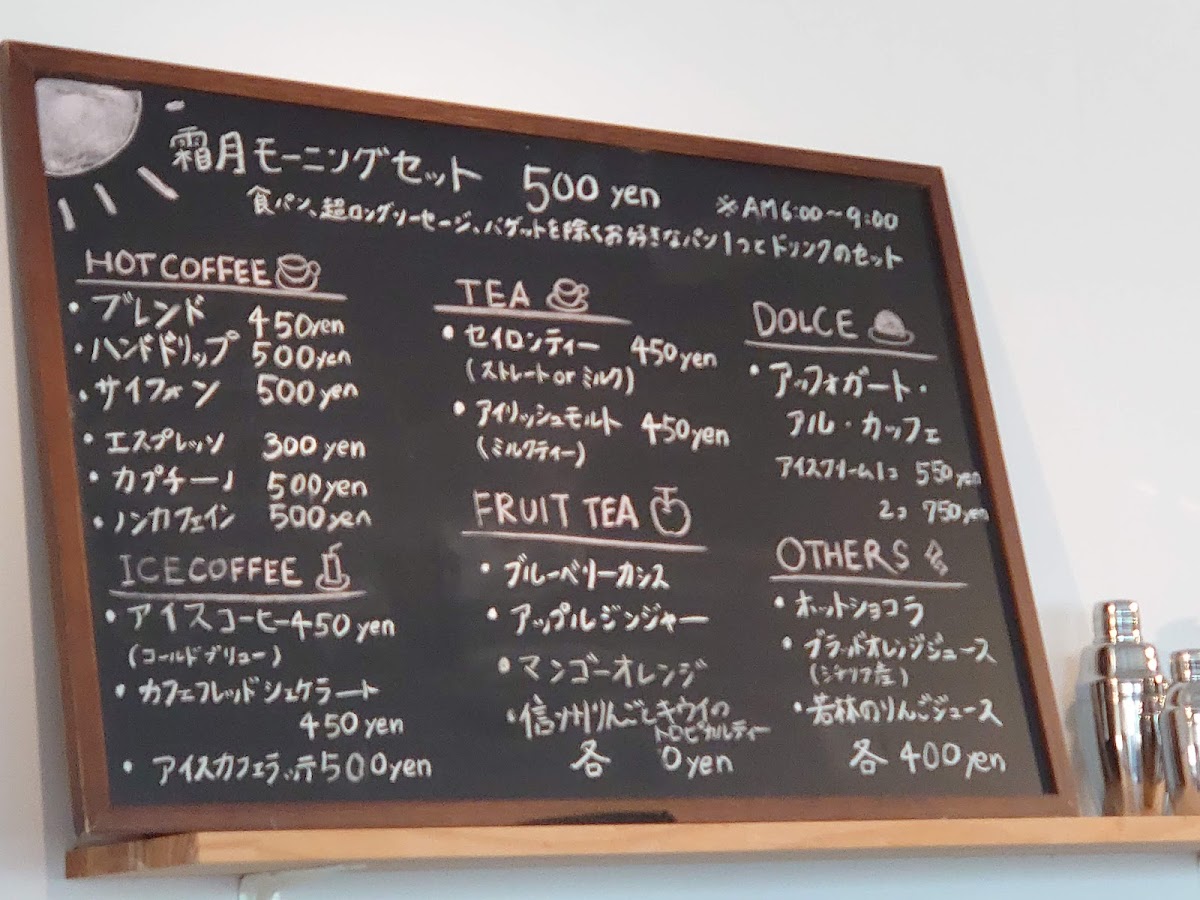 霜月モーニングセット 500 yen ※AM6:00~9:00
食パン、超ロングソーセージ、バゲットを除くお好きなパン1つとドリンクのセット
HOT COFFEE
・ブレンド 450yen
・ハンドドリップ 500yen
・サイフォン 500yen
・エスプレッソ 300yen
・カプチーノ 500yen
・ノンカフェイン 500yen
ICE COFFEE
・アイスコーヒー 450 yen
(コールドブリュー)
・カフェフレッドシェケラート
450 yen
・アイスカフェラッテ 500yen
TEA
・セイロンティー 450yen
(ストレート or ミルク)
・アイリッシュモルト 450yen
(ミルクティー)
FRUIT TEA
・ブルーベリーカシス
・アップルジンジャー
・マンゴーオレンジ
・信州りんごとキウイの
トロピカルティー
各 0yen
DOLCE
・アッフォガート・
アル・カッフェ
アイスクリーム1コ 550yen
2コ 750yen
OTHERS
・ホットショコラ
・ブラッドオレンジジュース
(シチリア産)
・若林のりんごジュース
各 400yen